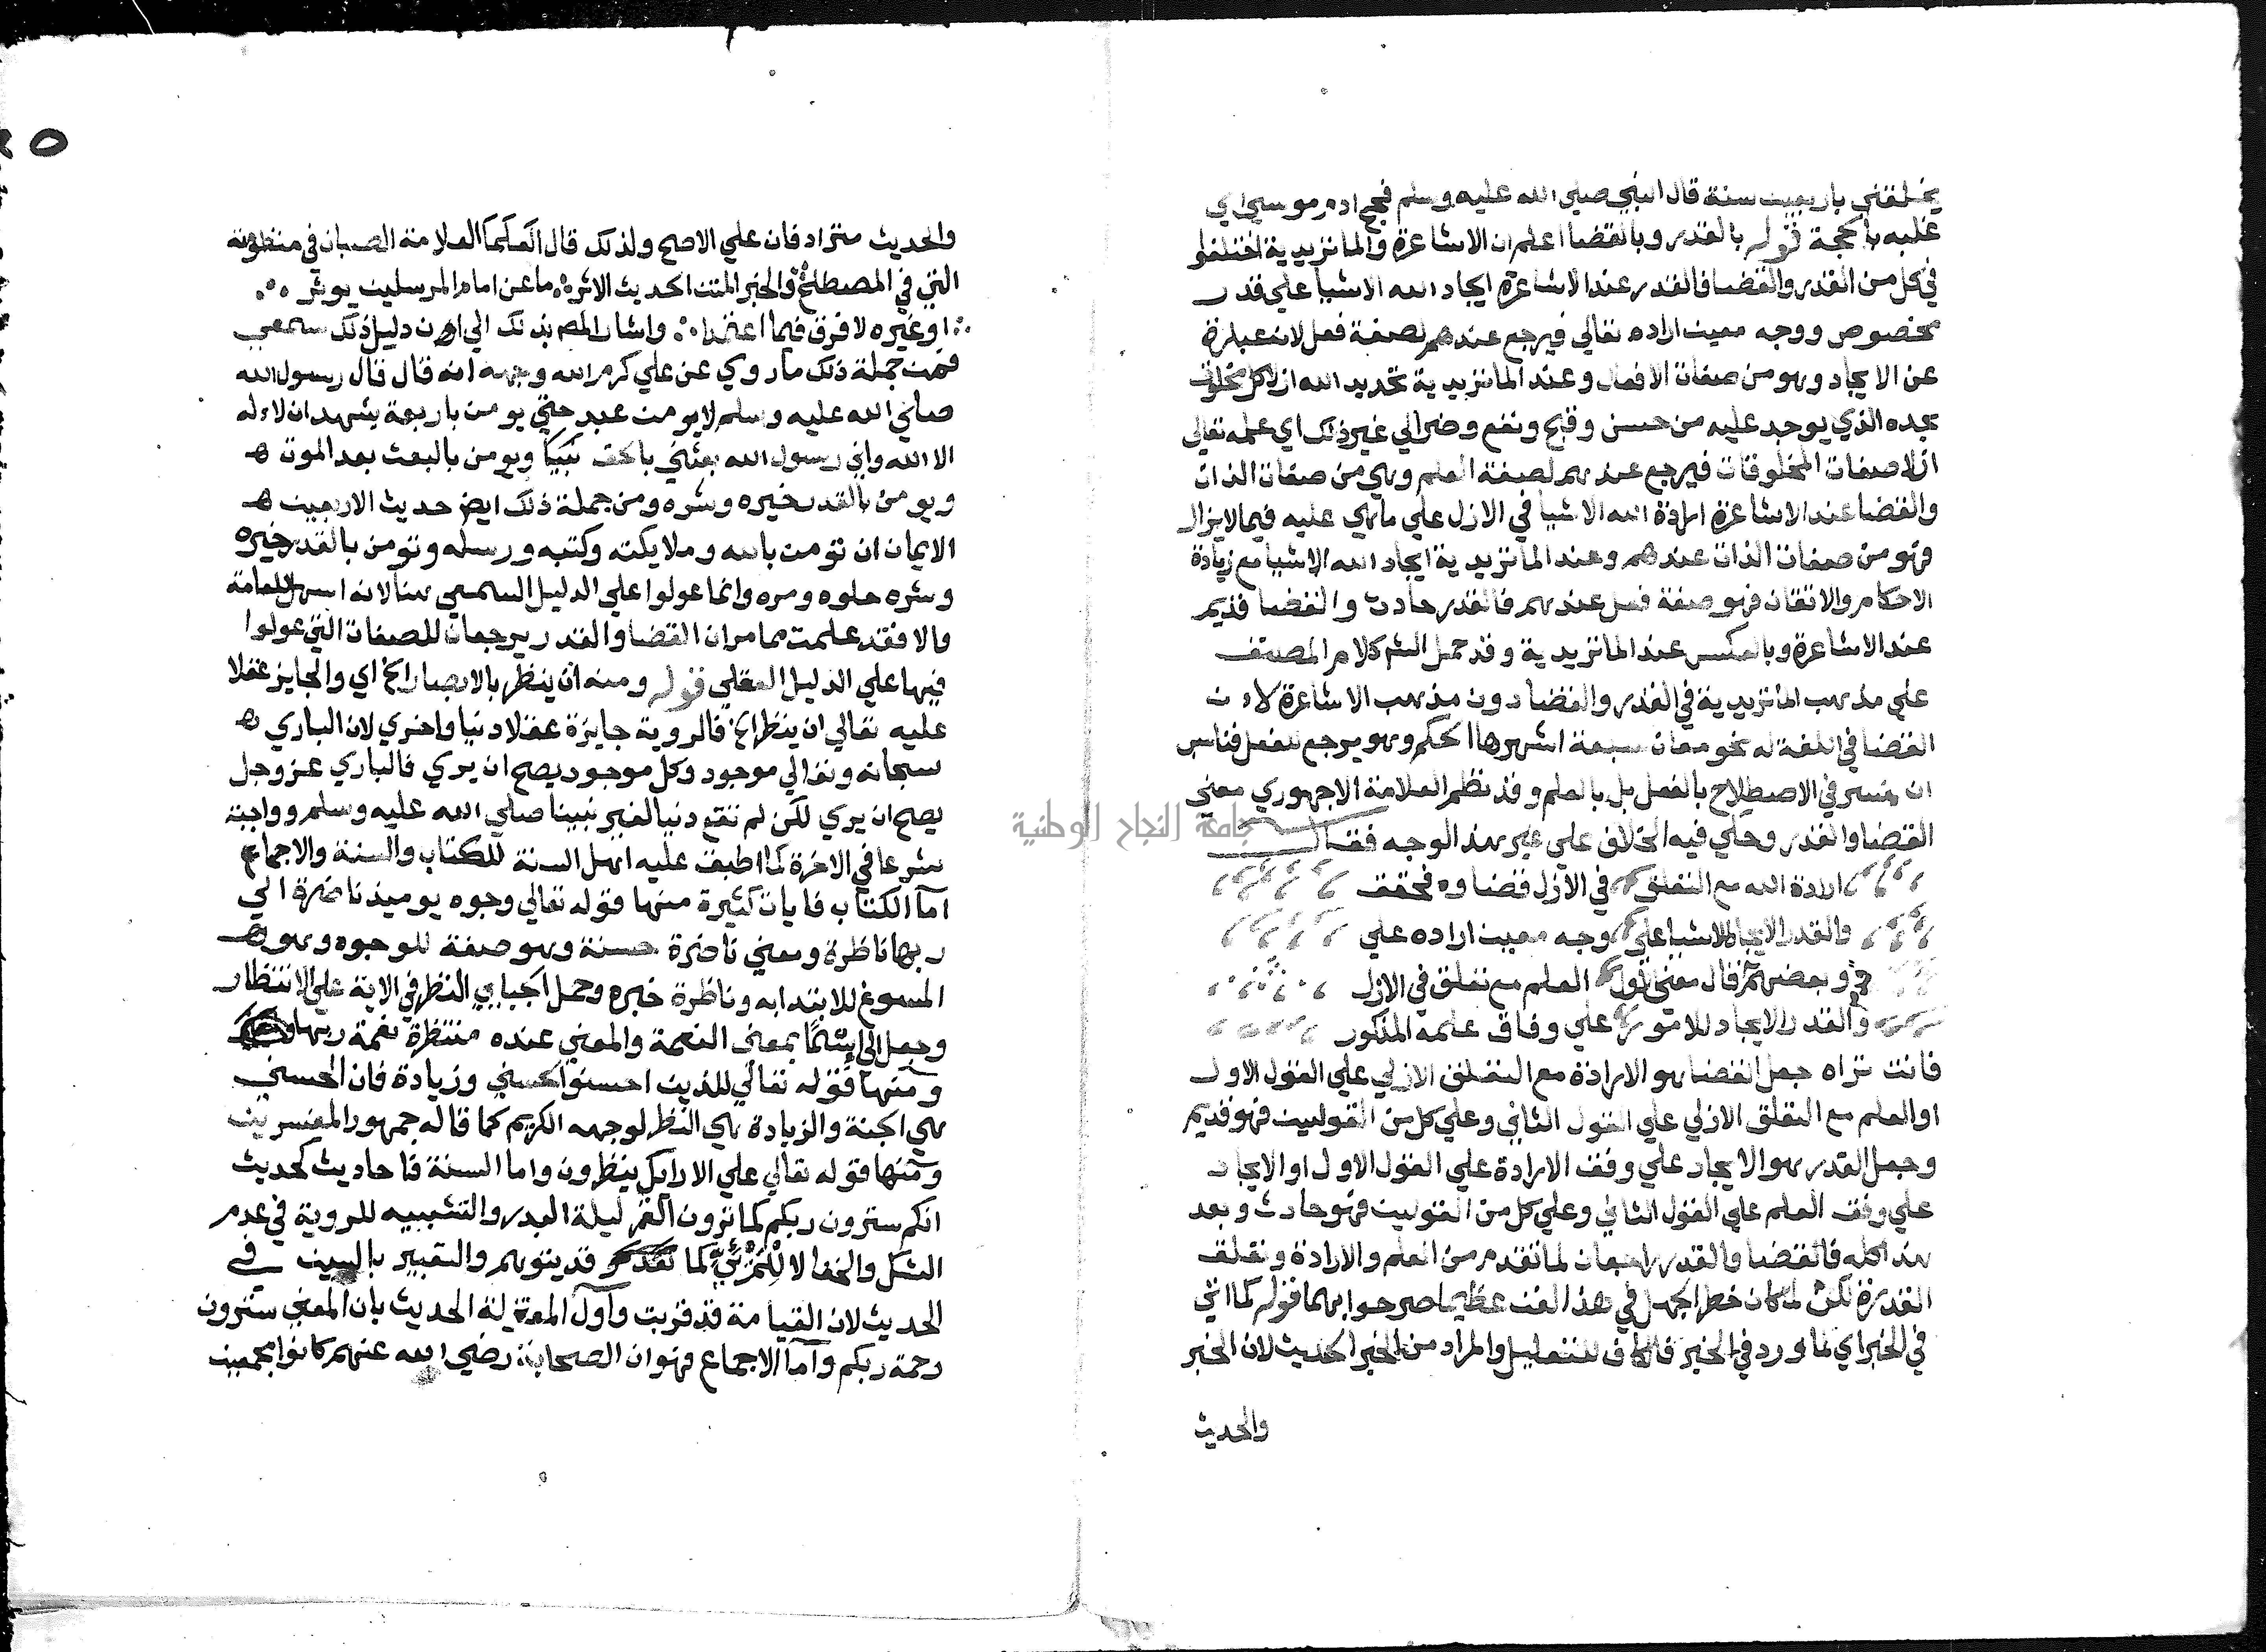 يخلقني باربعين سنة قال النبي صلي الله عليه وسلم فحج ادم موسي اي
غلبه بالحجة قوله بالقدر وبالقضا اعلم ان الاشاعرة والماتريدية اختلفوا
في كل من القدر والقضا فالقدر عند الاشاعرة ايجاد الله الاشيا علي قدر
مخصوص ووجه معين اراده تعالي فيرجع عندهم لصفة فعل لانه عبارة
عن الايجاد وهو من صفات الافعال وعند الماتريدية تحديد الله ازلا كل مخلوق
بحده الذي يوجد عليه من حسن وقبح ونفع وضر الي غير ذلك اي علمه تعالي
ازلا صفات المخلوقات فيرجع عندهم لصفة العلم وهي من صفات الذات
والقضا عند الاشاعرة ارادة الله الاشيا في الازل علي ما هي عليه فيما لايزال
فهو من صفات الذات عندهم وعند الماتريدية ايجاد الله الاشيا مع زيادة
الاحكام والاتقان فهو صفة فعل عندهم فالقدر حادث والقضا قديم
عند الاشاعرة وبالعكس عند الماتريدية وقد حمل الشم كلام المصنف
علي مذهب الماتريدية في القدر والقضا دون مذهب الاشاعرة لان
القضا في اللغة له نحو معان سبعة اشهرها الحكم وهو يرجع للفعل فناسب
ان يفسر في الاصطلاح بالفعل بل بالعلم وقد نظم العلامة الاجهوري معني
القضا والقدر وحكي فيه الخلاف علي غير هذ الوجه فقال
ارادة الله مع التعلق في الازل قضاوه فحقق
والقدر الايجاد للاشيا علي وجه معين اراده علي
وبعضهم قد قال معني الاول العلم مع تعلق في الازل
والقدر الايجاد للامور علي وفاق علمه المذكور
فانت تراه جعل القضا هو الارادة مع التعلق الازلي علي القول الاول
او العلم مع التعلق الازلي علي القول الثاني وعلي كل من القولين فهو قديم
وجعل القدر هو الايجاد علي وفق الارادة علي القول الاول او الايجاد
علي وفق العلم علي القول الثاني وعلي كل من القولين فهو حادث وبعد
هذا كله فالقضا والقدر راجعان لما تقدم من العلم والارادة وتعلق
القدرة لكن لما كان خطر الجهل في هذ الفن عظيما صرحوا بهما قوله كما اتي
في الخبر اي لما ورد في الخبر فالكاف للتعليل والمراد من الخبر الحديث لان الخبر
والحديث
والحديث مترادفان علي الاصح ولذلك قال العلامة الصبان في منظومته
التي في المصطلح والخبر المتن الحديث الاثر ما عن امام المرسلين يوثر
او غيره لا فرق فيما اعتمدا واشار المص بذلك الي ان دليل ذلك سمعي
فمن جملة ذلك ما روي عن علي كرم الله وجهه انه قال قال رسول الله
صلي الله عليه وسلم لا يومن عبد حتي يومن باربعة يشهد ان لا اله
الا الله واني رسول الله بعثني بالحق نبيا ويومن بالبعث بعد الموت ه
ويومن بالقدر خيره وشره ومن جملة ذلك ايض حديث الاربعين ه
الايمان ان تومن بالله وملايكته وكتبه ورسله وتومن بالقدر خيره
وشره حلوه ومره وانما عولوا علي الدليل السمعي هنا لانه اسهل للعامة
والا فقد علمت مما مر ان القضا والقدر يرجعان للصفات التي عولوا
فيها علي الدليل العقلي قوله ومنه ان ينظر بالابصار الخ اي والجايز عقلا
عليه تعالي ان ينظر الخ فالروية جايزة عقلا دنيا واخري لان الباري ه
سبحانه وتعالي موجود وكل موجود يصح ان يري فالباري عز وجل
يصح ان يري لكن لم تقع دنيا لغير نبينا صلي الله عليه وسلم وواجبة
شرعا في الاخرة كما اطبق عليه اهل السنة للكتاب والسنة والاجماع
اما الكتاب فايات كثيرة منها قوله تعالي وجوه يوميذ ناضرة الي
ربها ناظرة ومعني ناضرة حسنة وهو صفة للوجوه وهو ه
المسوغ للابتدا به وناظرة خبره وحمل الجبايي النظر في الاية علي الانتظار
وجعل الي اسما بمعني النعمة والمعني عنده منتظرة نعمة ربها
ومنها قوله تعالي للذين احسنوا الحسني وزيادة فان الحسني
هي الجنة والزيادة هي النظر لوجهه الكريم كما قاله جمهور المفسرين
ومنها قوله تعالي علي الارايك ينظرون واما السنة فاحاديث كحديث
انكم سترون ربكم كما ترون القمر ليلة البدر والتشبيه للروية في عدم
الشك والخفا لا للمرئي كما قد يتوهم والتعبير بالسين في
الحديث لان القيامة قد قربت واول المعتزلة الحديث بان المعني سترون
رحمة ربكم واما الاجماع فهو ان الصحابة رضي الله عنهم كانوا مجمعين
جامعة النجاح الوطنية